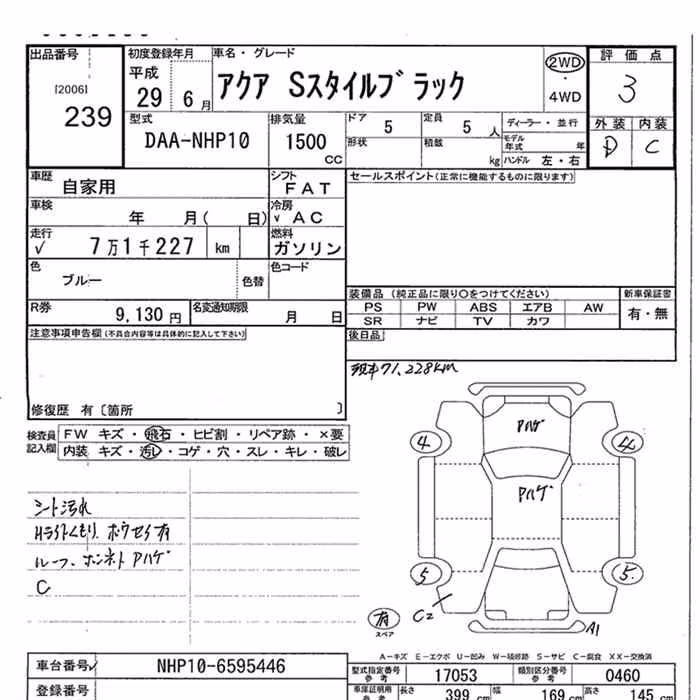 出品番号
[2006]
239
初度登録年月
平成
29 6 月
車名・グレード
アクア Sスタイルブラック
2WD
・
4WD
評価点
3
外装 内装
D C
型式
DAA-NHP10
排気量
1500
CC
ドア
5
定員
5 人
形状
積載
kg
ディーラー・並行
モデル年式 年
ハンドル 左・右
車歴
自家用
シフト
FAT
車検
年 月( 日)
冷房
√ AC
走行
√ 7万1千227 km
燃料
ガソリン
色
ブルー
色替
色コード
R券
9,130 円
名変通知期限
月 日
セールスポイント(正常に機能するものに限ります)
装備品 (純正品に限り○をつけてください)
PS PW ABS エアB AW
SR ナビ TV カワ
新車保証書
有・無
後日品
注意事項申告欄(不具合内容等は具体的に記入して下さい)
修復歴 有〔箇所 〕
現車71,228km
検査員記入欄
FW キズ・飛石・ヒビ割・リペア跡・×要
内装 キズ・汚レ・コゲ・穴・スレ・キレ・破レ
シート汚れ
Hライトくもり、ホウセイ有
ルーフ、ボンネトPハゲ
C
Pハゲ
Pハゲ
4
4
5
5
C2
A1
有
スペア
A-キズ E-エクボ U-凹み W-補修跡 S-サビ C-腐食 XX-交換済
車台番号√ NHP10-6595446
登録番号
型式指定番号
参考
17053
類別区分番号
参考
0460
車庫証明用
参考
長さ 399 cm 幅 169 cm 高さ 145 cm